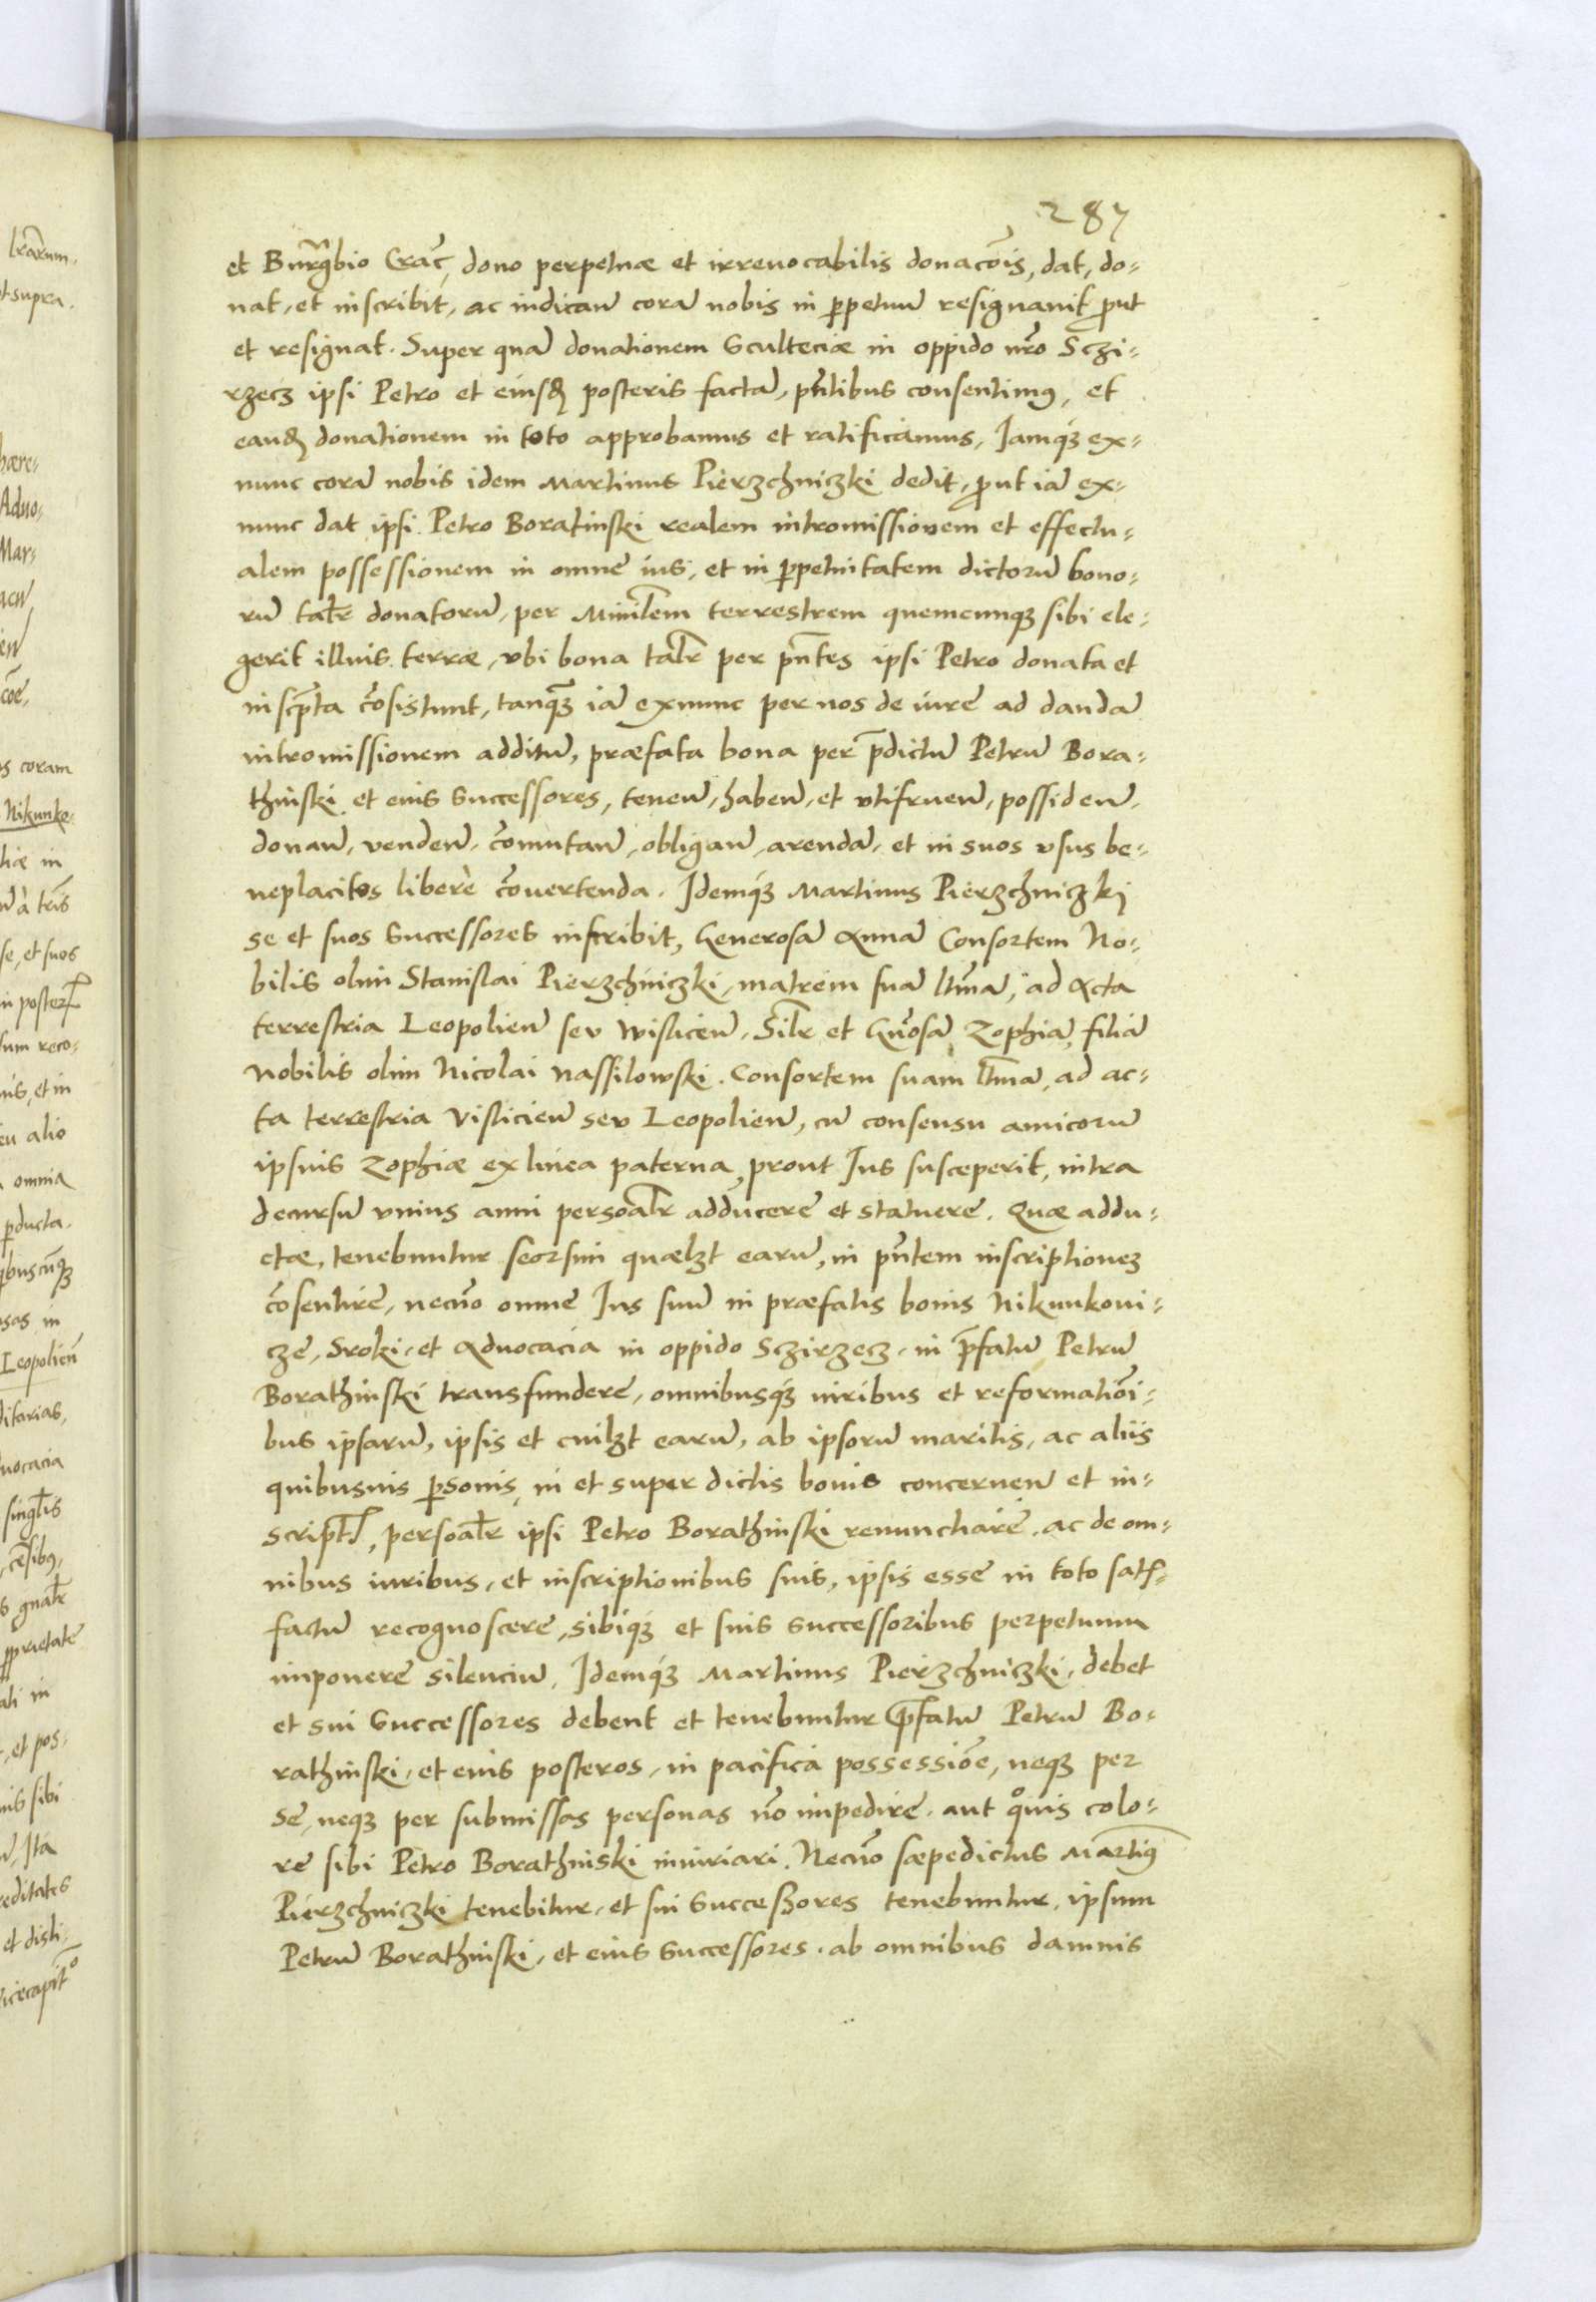 287
et Burgrabio Crac̃, dono perpetuæ et irreuocabilis donacõis, dat, do-
nat, et inscribit, ac indicaũ corã nobis in ꝑpetuũ resignauit ꝓut
et resignat. Super quã donationem Sculteciæ in oppido nr̃o Sczi-
rzecz ipsi Petro et eiusdẽ posteris factã, pñtibus consentimꝰ, et
eandẽ donationem in toto approbamus et ratificamus, Iamqꝫ ex-
nunc corã nobis idem Martinus Pierzchniczki dedit, ꝓut iã ex-
nunc dat ipsi Petro Boratinski realem intromissionem et effectu-
alem possessionem in omne ius, et in ꝑpetuitatem dictorũ bono-
rũ tal̃r donatorũ, per Minil̃em terrestrem quemcunqꝫ sibi ele-
gerit illius terræ, vbi bona tal̃r per pñtes ipsi Petro donata et
inscp̃ta cõsistunt, tanqꝫ iã exnunc per nos de iure ad dandã
intromissionem additũ, præfata bona per p̃dictũ Petrũ Bora-
thinski et eius Successores, teneñ, habeñ, et vtifrueñ, possideñ,
donañ, vendeñ, cõmutañ, obligañ, arendã, et in suos vsus be-
neplacitos liberè cõuertenda. Idemqꝫ Martinus Pierzchniczki
se et suos Successores inscribit, Generosã Annã Consortem No-
bilis olim Stanislai Pierzchniczki, matrem suã l̃tmã, ad Acta
terrestria Leopolieñ seu Wisliceñ. Sil̃r et Gñosã Zophiã, filiã
Nobilis olim Nicolai Nassilowski. Consortem suam l̃tmã, ad ac-
ta terrestria Visliciеñ seu Leopolieñ, cũ consensu amicorũ
ipsius Zophiæ ex linea paterna, prout Ius susceperit, intra
decursũ vnius anni persoal̃r adducere et statuere. Quæ addu-
ctæ, tenebuntur seorsim quælꝫt earũ, in pñtem inscriptionez
cõsentire, necnõ omne Ius suũ in præfatis bonis Nikunkoui-
cze, Sroki, et Aduocacia in oppido Sczirzecz, in p̃fatũ Petrũ
Borathinski transfundere, omnibusqꝫ iuribus et reformatiõi-
bus ipsarũ, ipsis et cuilꝫt earũ, ab ipsorũ maritis, ac aliis
quibusuis ꝑsonis, in et super dictis bonis concerneñ et in-
script̃, persoal̃r ipsi Petro Borathinski renunctiare, ac de om-
nibus iuribus, et inscriptionibus suis, ipsis esse in toto satis-
factũ recognoscere, sibiqꝫ et suis Successoribus perpetuum
imponere silenciũ. Idemqꝫ Martinus Pierzchniczki, debet
et sui Successores debent et tenebuntur p̃fatũ Petrũ Bo-
rathinski, et eius posteros, in pacifica possessiõe, neqꝫ per
se, neqꝫ per submissas personas nõ impedire, aut qͦuis colo-
re sibi Petro Borathinski iniuriari. Necnõ sæpedictus Martinꝰ
Pierzchniczki tenebitur, et sui Successores tenebuntur, ipsum
Petrũ Borathinski, et eius Successores, ab omnibus damnis